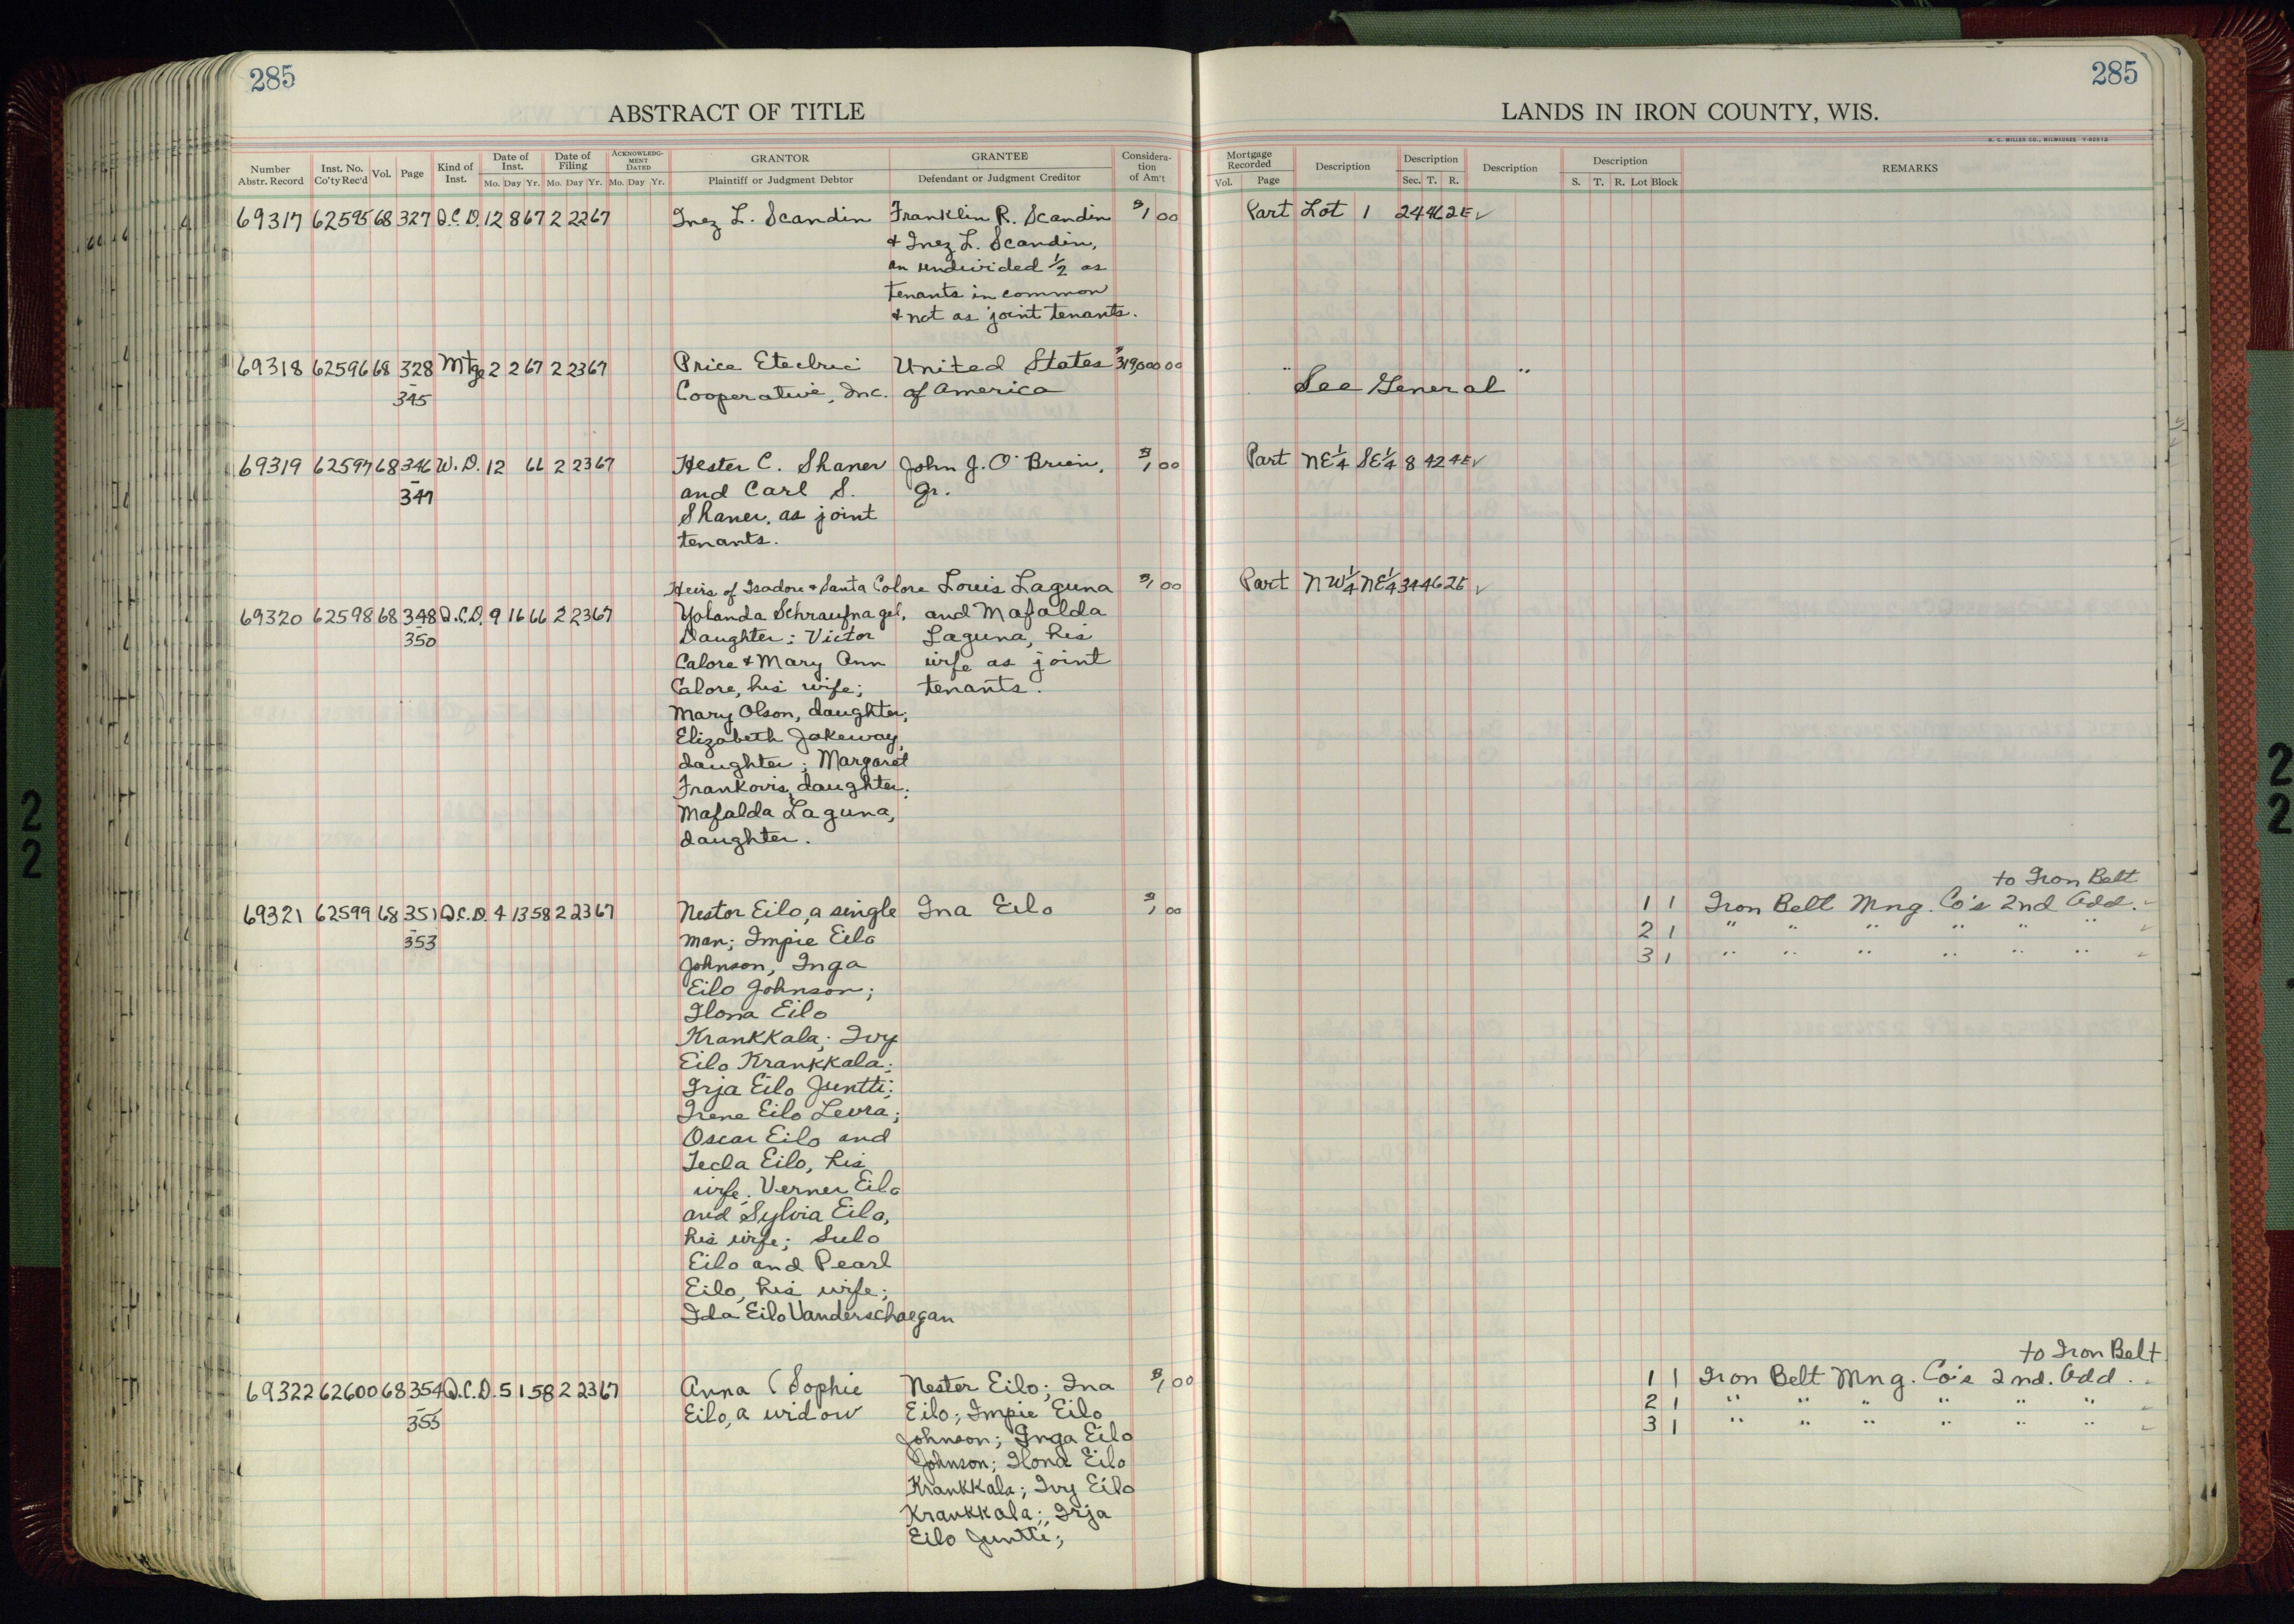 285
285
ABSTRACT OF TITLE
LANDS IN IRON COUNTY, WIS.
H. C. MILLER CO., MILWAUKEE
Number Abstr. Record Inst. No. Co'ty Rec'd Vol. Page Kind of Inst. Date of Inst. Mo. Day Yr. Date of Filing Mo. Day Yr. ACKNOWLEDGMENT DATED Mo. Day Yr. GRANTOR Plaintiff or Judgment Debtor GRANTEE Defendant or Judgment Creditor Considera-tion of Am't
Mortgage Recorded Vol. Page Description Description Sec. T. R. Description Description S. T. R. Lot Block REMARKS
69317 62595 68 327 Q.C.D. 12 8 67 2 22 67 Inez L. Scandin Franklin R. Scandin $1 00 Part Lot 1 24 46 2E ✓
& Inez L. Scandin,
an undivided 1/2 as
tenants in common
& not as joint tenants.
69318 62596 68 328 Mtge 2 2 67 2 23 67 Price Etectric United States $319,000 00
- 345 Cooperative, Inc. of America " See General "
69319 62597 68 346 W.D. 12 66 2 23 67 Hester C. Shaner John J. O'Brien, $1 00 Part NE1/4 SE1/4 8 42 4E ✓
- 347 and Carl S. Jr.
Shaner, as joint
tenants.
Heirs of Isadore & Santa Calore Louis Laguna $1 00 Part NW1/4 NE1/4 34 46 2E ✓
69320 62598 68 348 Q.C.D. 9 16 66 2 23 67 Yolanda Schraufnagel, and Mafalda
- 350 Daughter; Victor Laguna, his
Calore & Mary Ann wife as joint
Calore, his wife; tenants.
Mary Olson, daughter;
Elizabeth Jakeway,
daughter; Margaret
Frankovis, daughter;
Mafalda Laguna,
daughter.
to Iron Belt
69321 62599 68 351 Q.C.D. 4 13 58 2 23 67 Nestor Eilo, a single Ina Eilo $1 00 1 1 Iron Belt Mng. Co's 2nd Add. ✓
- 353 man; Impie Eilo 2 1 " " " " " " ✓
Johnson, Inga 3 1 " " " " " " ✓
Eilo Johnson;
Ilona Eilo
Krankkala; Ivy
Eilo Krankkala;
Irja Eilo Juntti;
Irene Eilo Levra;
Oscar Eilo and
Tecla Eilo, his
wife. Verner Eilo
and Sylvia Eilo,
his wife; Sulo
Eilo and Pearl
Eilo, his wife;
Ida Eilo Vanderschaegan
to Iron Belt
69322 62600 68 354 Q.C.D. 5 1 58 2 23 67 Anna (Sophie Nester Eilo; Ina $1 00 1 1 Iron Belt Mng. Co's 2nd. Add. ✓
- 355 Eilo, a widow Eilo; Impie Eilo 2 1 " " " " " " ✓
Johnson; Inga Eilo 3 1 " " " " " " ✓
Johnson; Ilona Eilo
Krankkala; Ivy Eilo
Krankkala; Irja
Eilo Juntti;
2
2
2
2